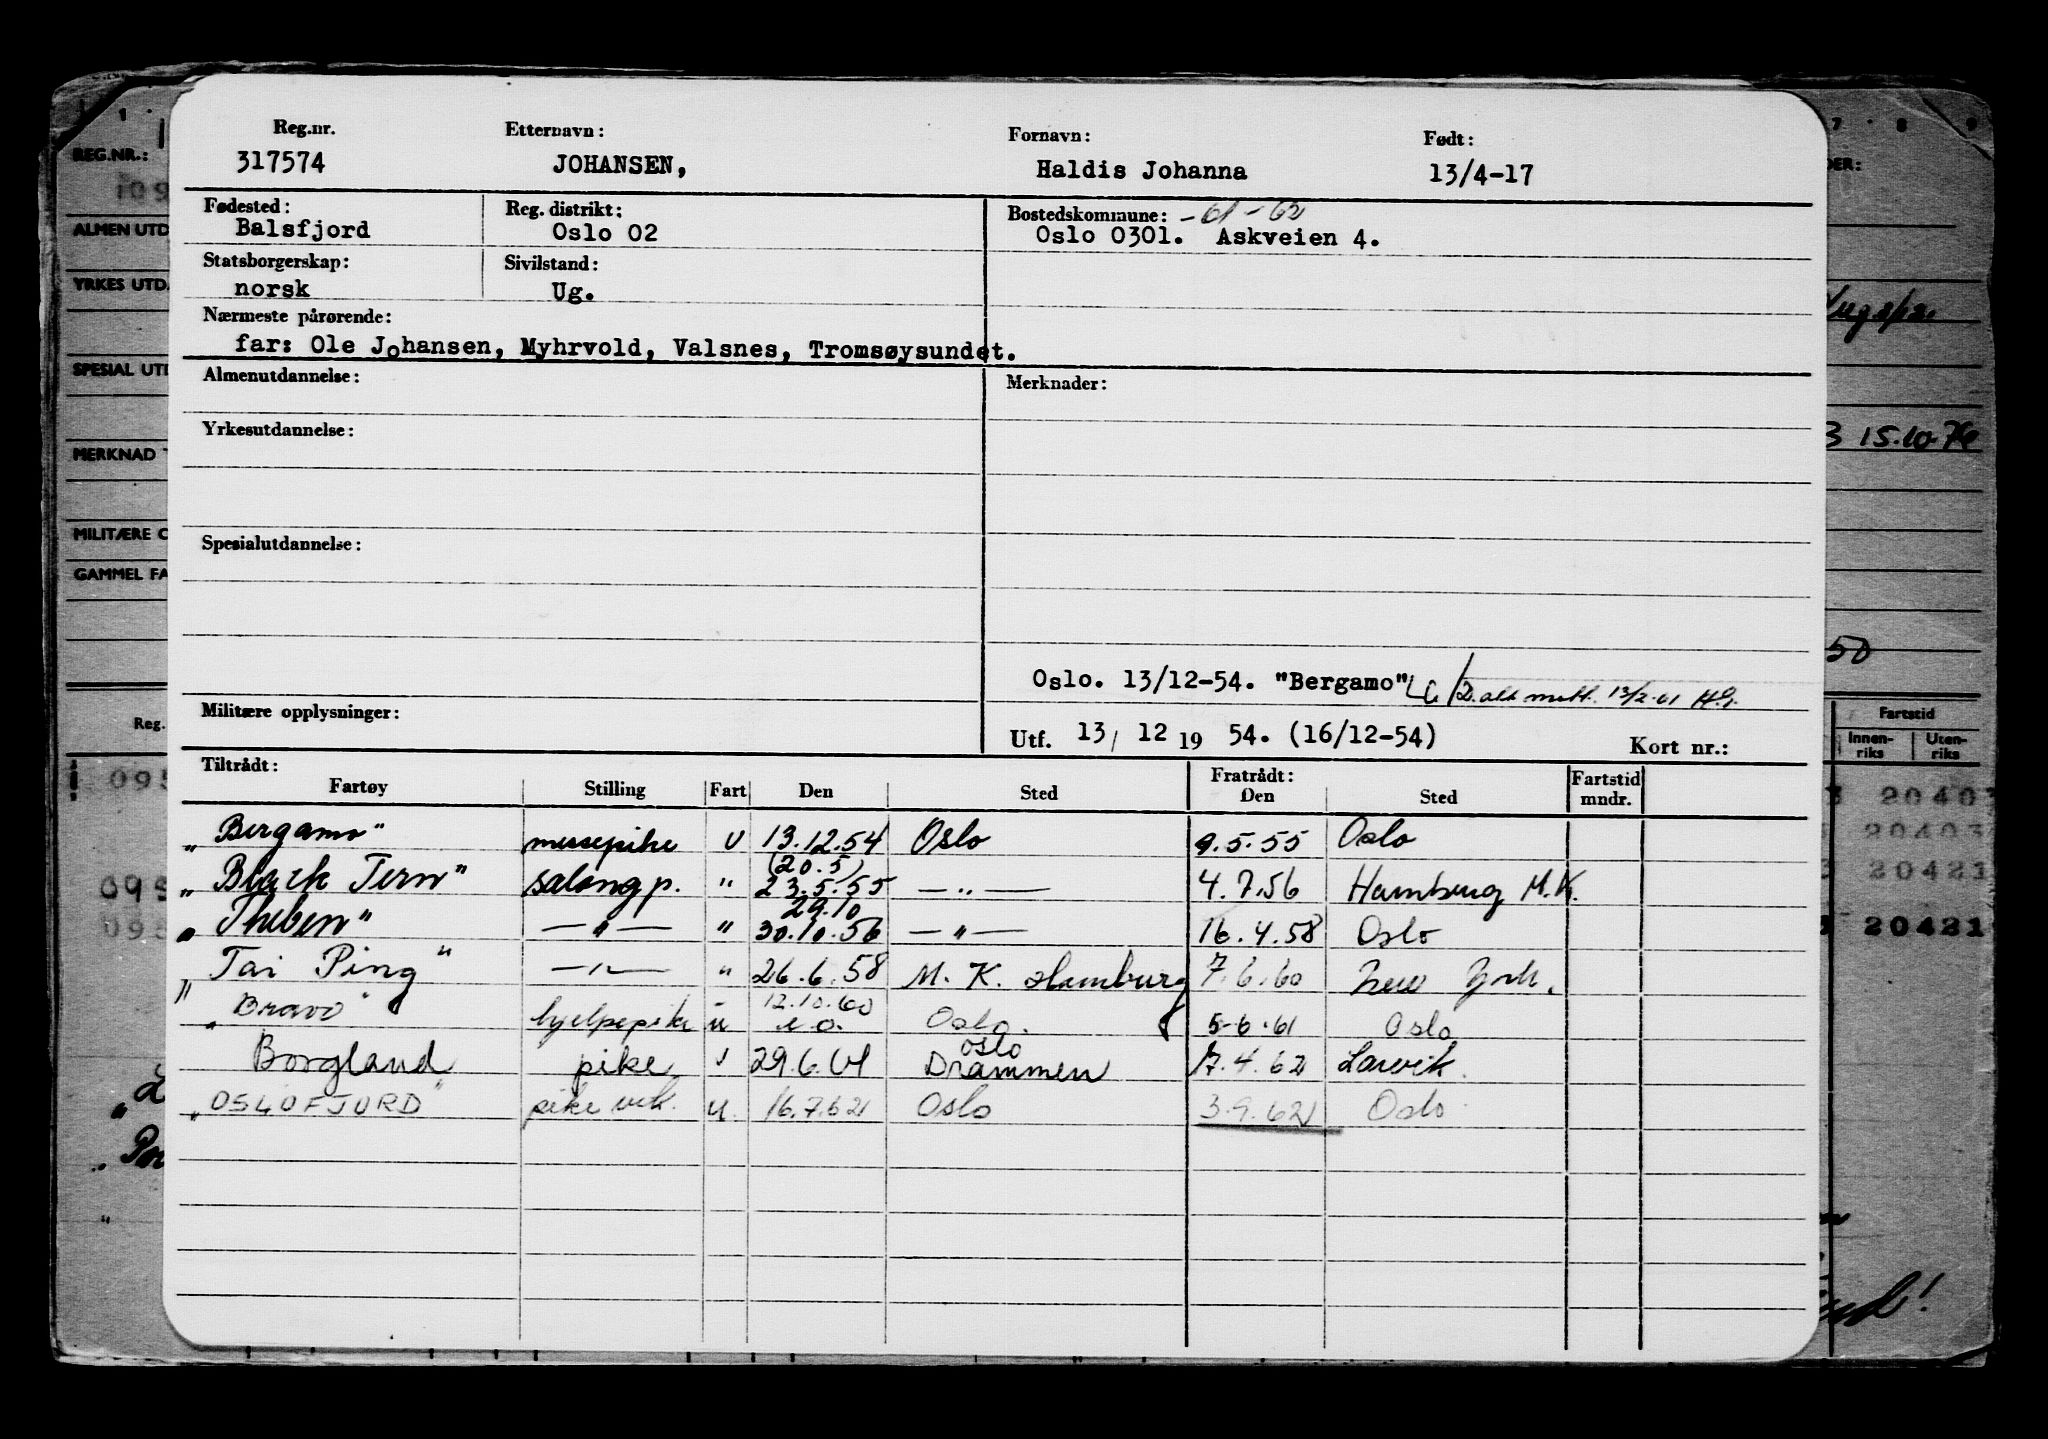 Reg.nr. Etternavn: Fornavn: Født:
317574 JOHANSEN, Haldis Johanna 13/4-17
Fødested: Reg. distrikt: Bostedskommune: -61-62
Balsfjord Oslo 02 Oslo 0301. Askveien 4.
Statsborgerskap: Sivilstand:
norsk Ug.
Nærmeste pårørende:
far: Ole Johansen, Myhrvold, Valsnes, Tromsøysundet.
Almenutdannelse: Merknader:
Yrkesutdannelse:
Spesialutdannelse:
Oslo. 13/12-54. "Bergamo" 13/2-61
Militære opplysninger:
Utf. 13/ 12 19 54. (16/12-54) Kort nr.:
Tiltrådt: Fratrådt: Fartstid
Fartøy Stilling Fart Den Sted Den Sted mndr.
"Bergamo" messepike U 13.12.54 Oslo 9.5.55 Oslo
(20.5)
"Black Tern" salongp. " 23.5.55 —"— 4.7.56 Hamburg M.K.
29.10
"Theben" —"— " 30.10.56 —"— 16.4.58 Oslo
"Tai Ping" —"— " 26.6.58 M. K. Hamburg 7.6.60 New York.
12.10.60
"Bravo" hjelpepike u Oslo. 5-6.61 Oslo
Oslo
Borgland pike 29.6.61 Drammen 17.4.62 Larvik.
"OSLOFJORD" pike vik. u. 16.7.62 Oslo 3.9.62 Oslo
REG.NR.:
109
ALMEN UTD
YRKES UTD.
SPESIAL UTD
MERKNAD
MILITÆRE O
GAMMEL FA
Reg.
095
095
095
7 8 9
DER:
3 15.10.76
50
Fartstid
Innen- Uten-
riks riks
3 20403
20403
3 20421
20421